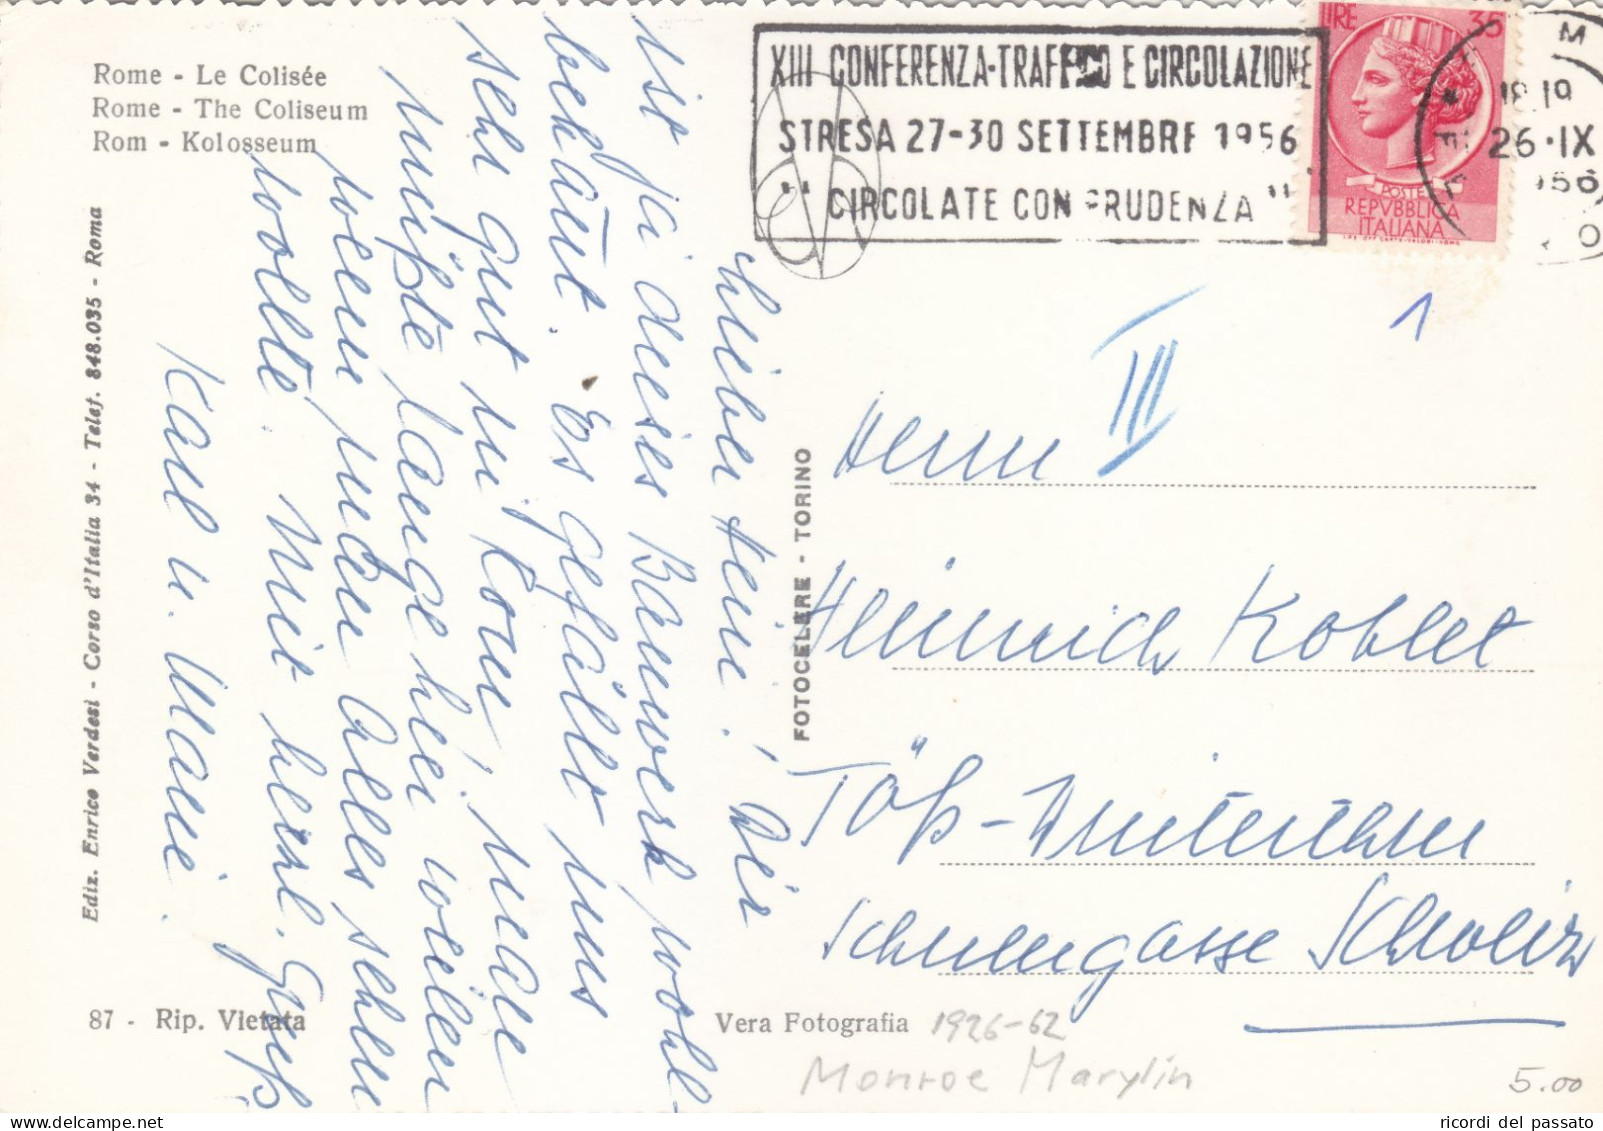 Rome - Le Colisée
Rome - The Coliseum
Rom - Kolosseum
XIII CONFERENZA-TRAFFICO E CIRCOLAZIONE
STRESA 27-30 SETTEMBRE 1956
"CIRCOLATE CON PRUDENZA"
LIRE 35
POSTE
REPVBBLICA
ITALIANA
18.19
26·IX
1956
Ediz. Enrico Verdesi - Corso d'Italia 34 - Telef. 848.035 - Roma
Lieber Heini! Dir
ist ja dieses Bauwerk wohl
bekannt. Es gefällt uns
sehr gut in Rom, man
müßte lange hier weilen
wenn man alles sehen
wollte. Mit herzl. Gruß
Karl u. Marie.
FOTOCELERE - TORINO
III
1
Herrn
Heinrich Koblet
Töß-Winterthur
Schulgasse Schweiz
87 - Rip. Vietata
Vera Fotografia
1926-62
Monroe Marylin
5.00
ricordi del passato